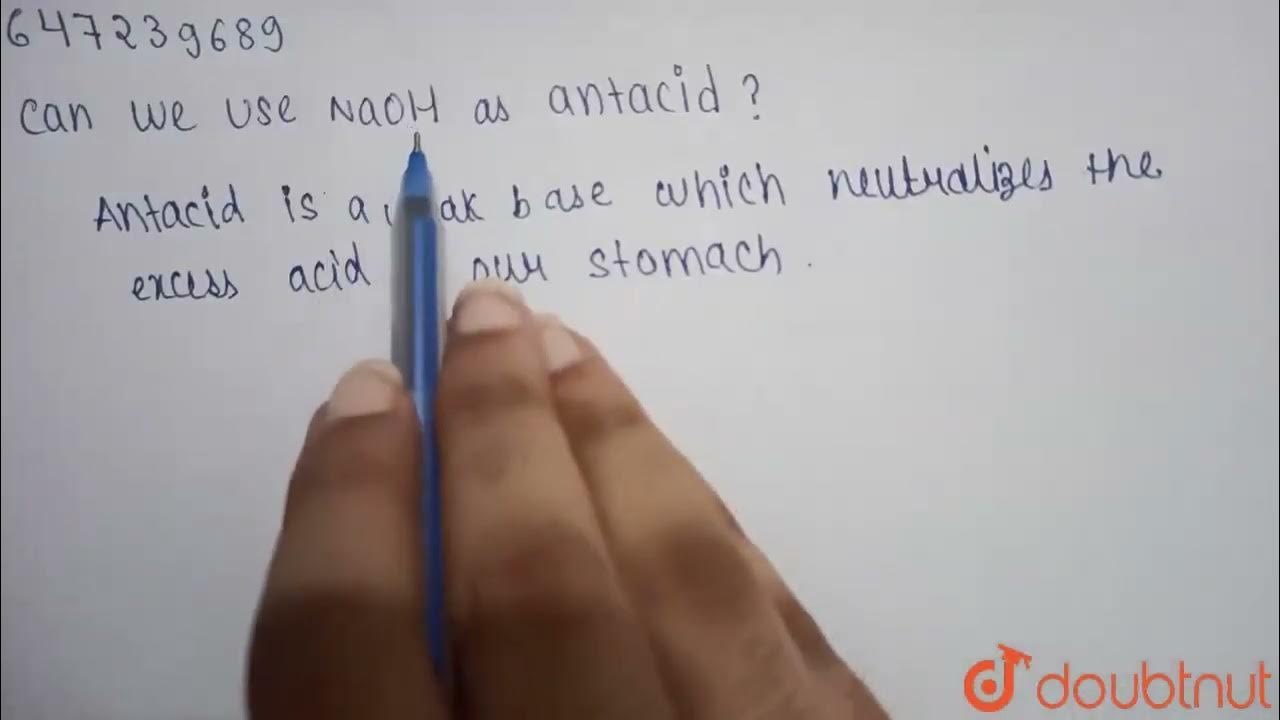 647239689
Can we use NaOH as antacid?
Antacid is a ak base which neutralizes the
excess acid our stomach.
doubtnut